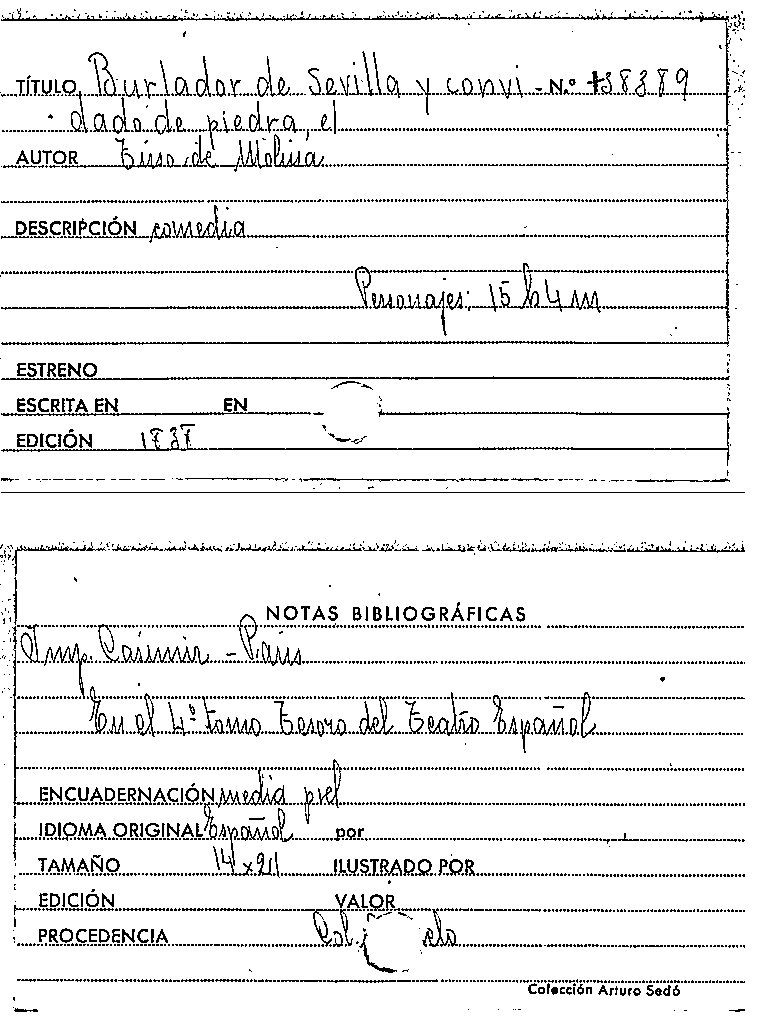 TÍTULO Burlador de Sevilla y convi - N.º 38389
dado de piedra, el
AUTOR Tirso de Molina
DESCRIPCIÓN comedia
Personajes: 15 h 4 m
ESTRENO
ESCRITA EN EN
EDICIÓN
NOTAS BIBLIOGRÁFICAS
Imp. Casimir - París
En el 4º tomo Tesoro del Teatro Español
ENCUADERNACIÓN media piel
IDIOMA ORIGINAL Español por
TAMAÑO 14 x 21 ILUSTRADO POR
EDICIÓN VALOR
PROCEDENCIA Col.
Colección Arturo Sedó